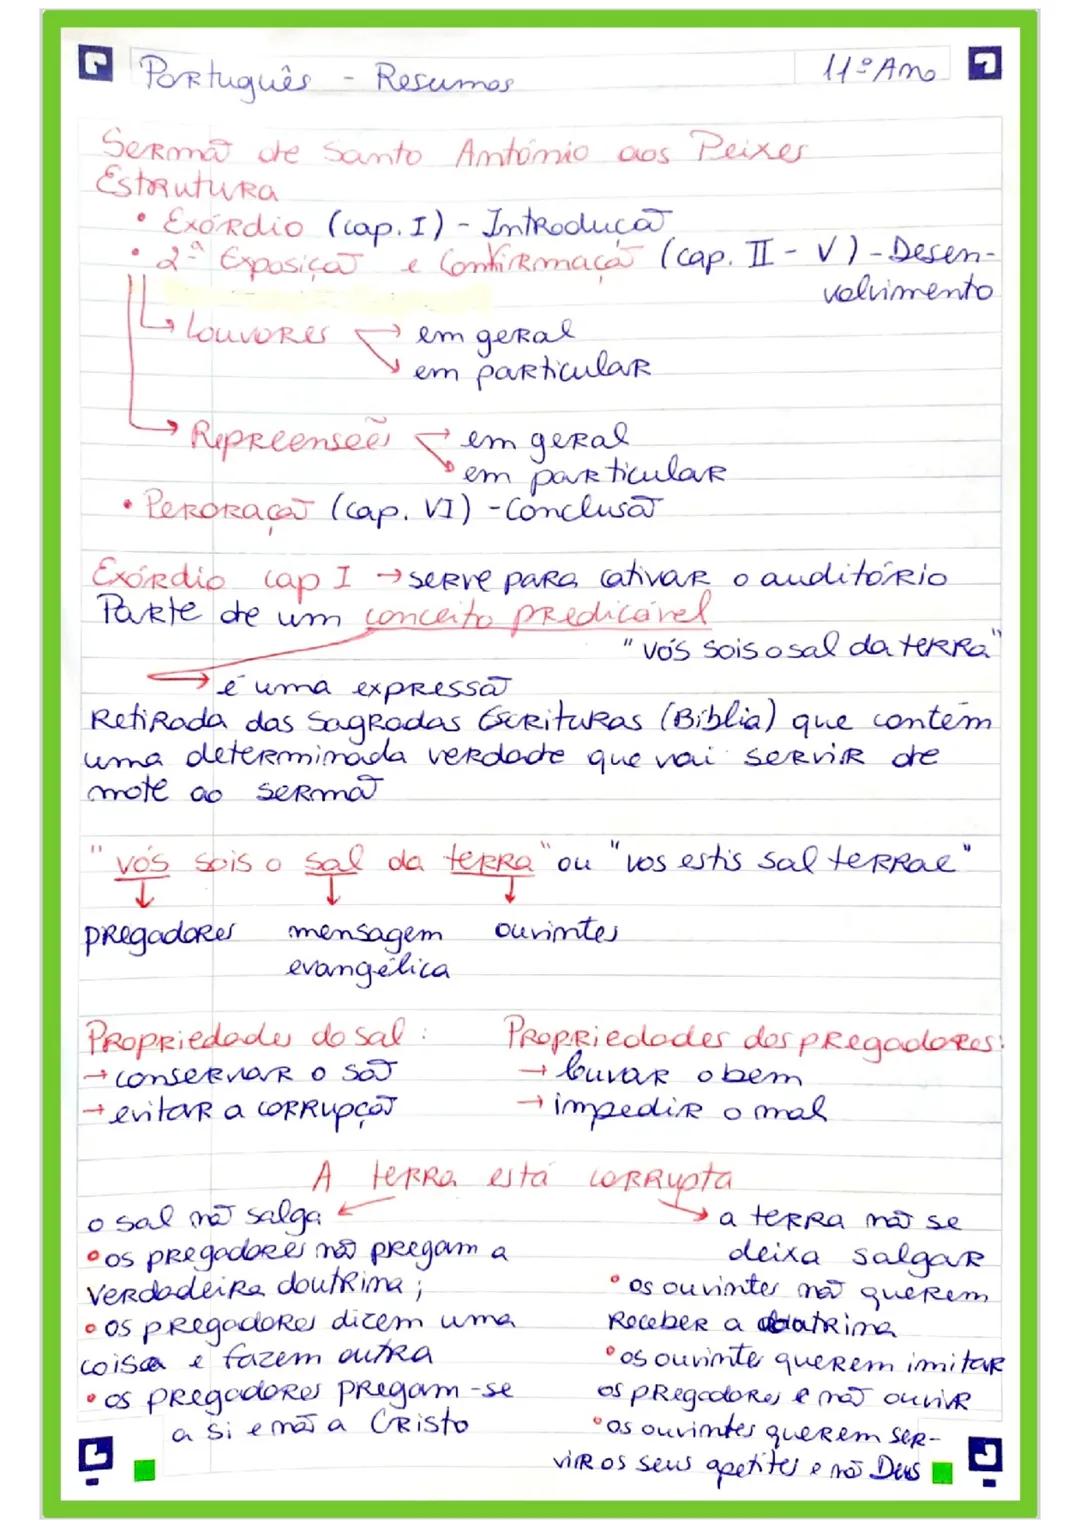 Português - Resumos
11º Ano
Sermão de Santo António aos Peixes
Estrutura
• Exórdio (cap. I) - Introdução
• 2ª Exposição e Confirmação (cap. II - V) - Desen-
volvimento
↳ Louvores → em geral
↘ em particular
→ Repreensões → em geral
↘ em particular
• Peroração (cap. VI) - Conclusão
Exórdio cap I → serve para cativar o auditório
Parte de um conceito predicável
"vós sois o sal da terra"
→ é uma expressão
Retirada das Sagradas Escrituras (Bíblia) que contém
uma determinada verdade que vai servir de
mote ao sermão
"vós sois o sal da terra" ou "vos estis sal terrae"
↓ ↓ ↓
pregadores mensagem ouvintes
evangélica
Propriedades do sal: Propriedades dos pregadores:
→ conservar o são → louvar o bem
→ evitar a corrupção → impedir o mal
A terra está corrupta
o sal não salga
• os pregadores não pregam a
verdadeira doutrina;
• os pregadores dizem uma
coisa e fazem outra
• os pregadores pregam-se
a si e não a Cristo
→ a terra não se
deixa salgar
• os ouvintes não querem
receber a doutrina
• os ouvinte querem imitar
os pregadores e não ouvir
• os ouvintes querem ser-
vir os seus apetites e não Deus